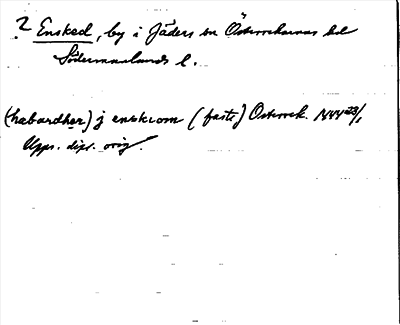 ? Ensked, by i Jäders sn Österrekarnas hd
Södermanlands l.
(habardher) j enskiom (faste) Österrek. 1444 23/1
Upps. dipl. orig.